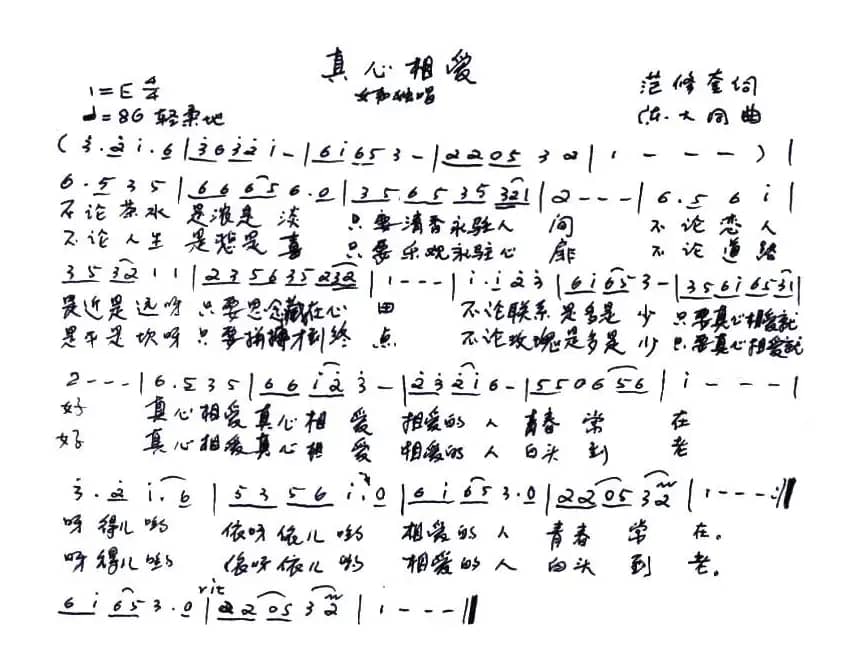 真心相爱
女声独唱
范修奎词
陈大同曲
1=E 4/4
♩=86 轻柔地
(3̇.2̇ 1̇.6|3̇6 3̇2̇ 1̇ -|61̇ 65 3 -|22 05 3 2|1 - - -)|
6.5 3 5|66 65 6.0|35 65 35 321|2 - - -|6.5 6 1̇|
不论茶水 是浓是淡 只要清香永驻人间 不论恋人
不论人生 是愁是喜 只要乐观永驻心扉 不论道路
35 32 1 1|23 56 35 232|1 - - -|1̇.1̇ 2̇ 3̇|61̇ 65 3 -|35 61̇ 65 31|
是近是远呀 只要思念藏在心田 不论联系是多是少 只要真心相爱就
是平是坎呀 只要拼搏才到终点 不论玫瑰是多是少 只要真心相爱就
2 - - -|6.5 3 5|66 1̇2̇ 3̇ -|2̇3̇ 2̇1̇ 6 -|55 06 56|1̇ - - -|
好 真心相爱真心相爱 相爱的人青春常在
好 真心相爱真心相爱 相爱的人白头到老
3̇.2̇ 1̇.6|53 56 1̇.0|61̇ 65 3.0|22 05 32|1 - - -:||
呀得儿哟 依呀依儿哟 相爱的人 青春常在。
呀得儿哟 依呀依儿哟 相爱的人 白头到老。
rit
61̇ 65 3.0|22 05 32|1 - - -||